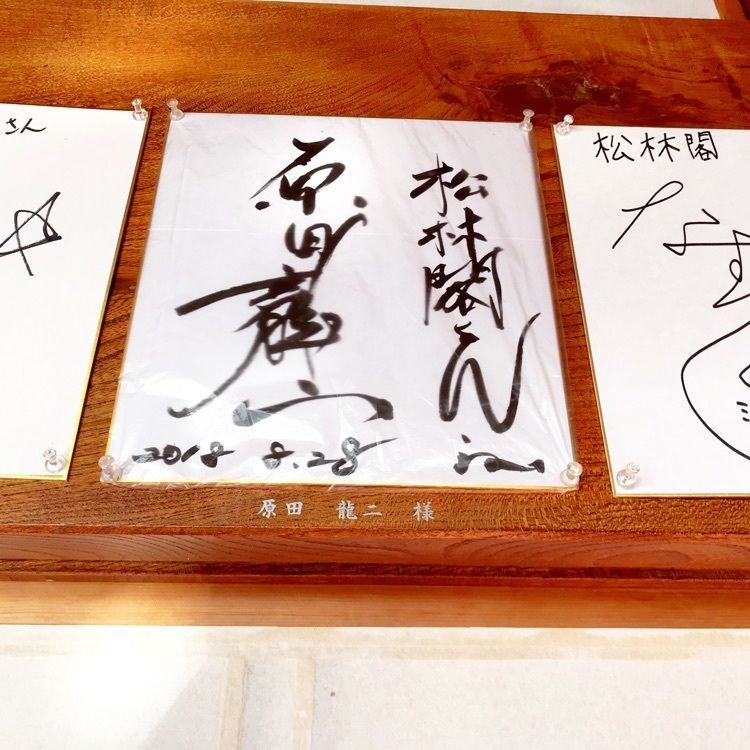 さん
松林閣さん江
原田龍二
2018 8.28
松林閣
原田 龍二 様